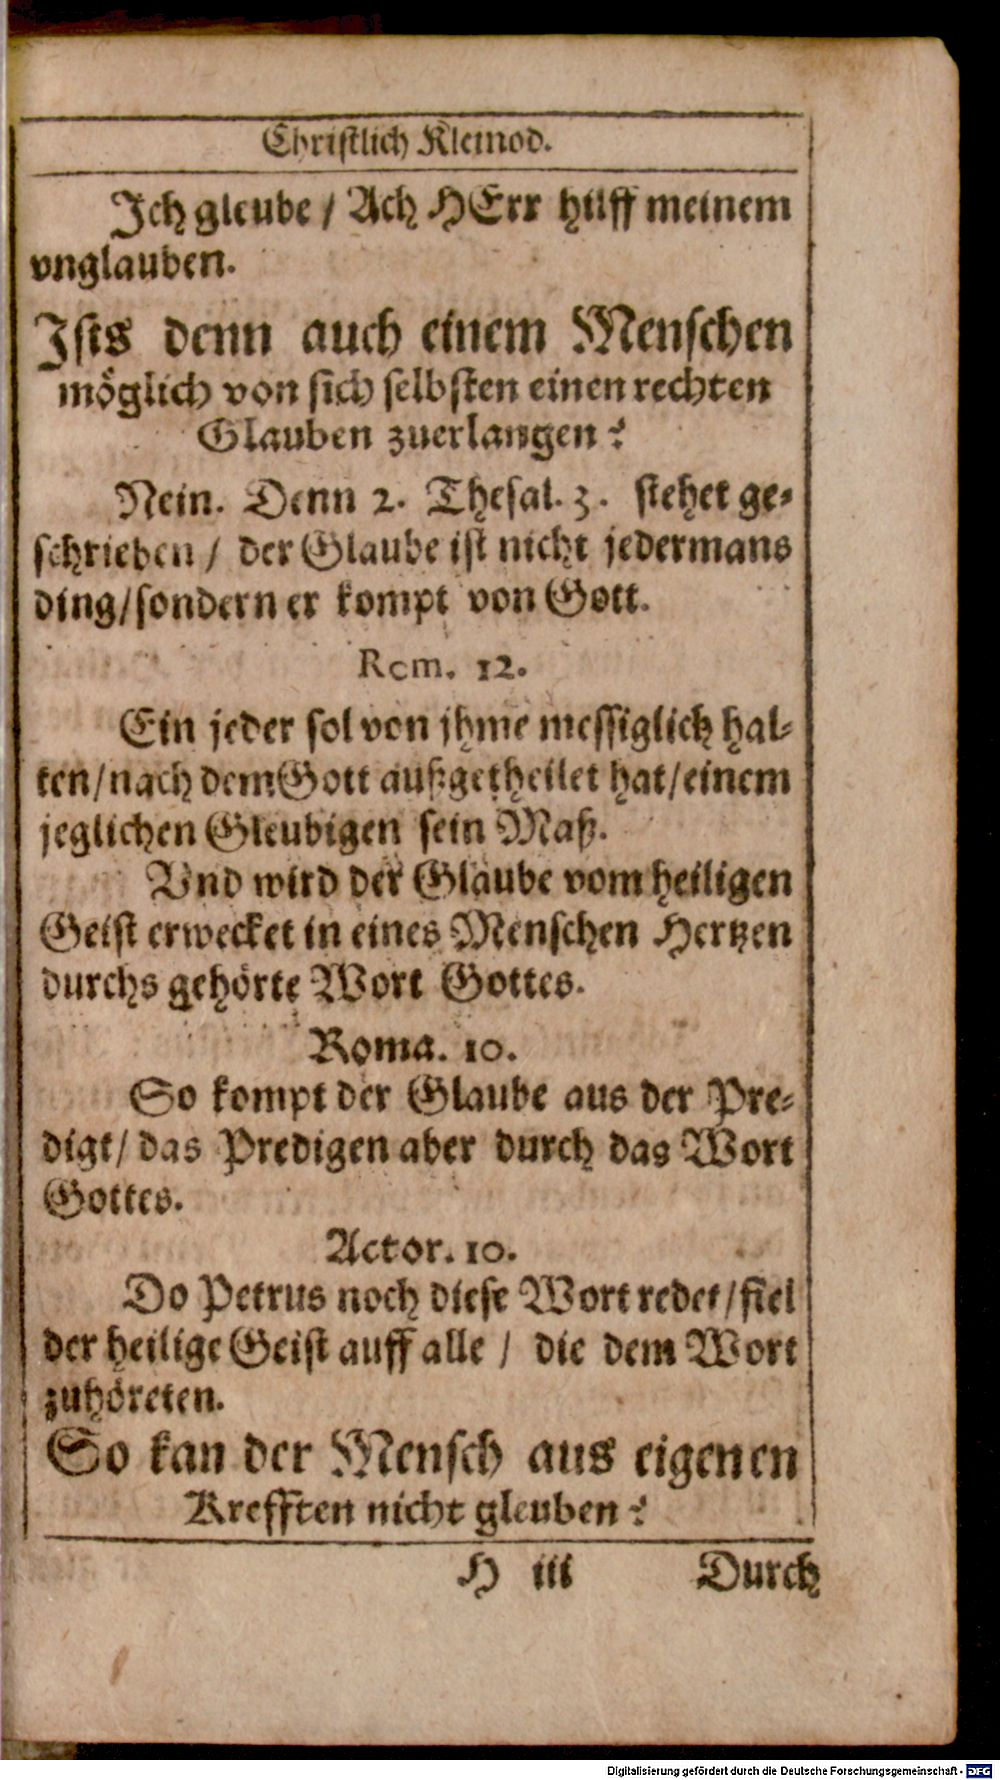 Christlich Kleinod.
Ich gleube / Ach HErr hilff meinem
vnglauben.
Ists denn auch einem Menschen
möglich von sich selbsten einen rechten
Glauben zuerlangen?
Nein. Denn 2. Thesal. 3. stehet ge-
schrieben / der Glaube ist nicht jedermans
ding / sondern er kompt von Gott.
Rom. 12.
Ein jeder sol von jhme messiglich hal-
ten / nach dem Gott außgetheilet hat / einem
jeglichen Gleubigen sein Maß.
Vnd wird der Glaube vom heiligen
Geist erwecket in eines Menschen Hertzen
durchs gehörte Wort Gottes.
Roma. 10.
So kompt der Glaube aus der Pre-
digt / das Predigen aber durch das Wort
Gottes.
Actor. 10.
Do Petrus noch diese Wort redet / fiel
der heilige Geist auff alle / die dem Wort
zuhöreten.
So kan der Mensch aus eigenen
Krefften nicht gleuben?
H iii Durch
Digitalisierung gefördert durch die Deutsche Forschungsgemeinschaft - DFG